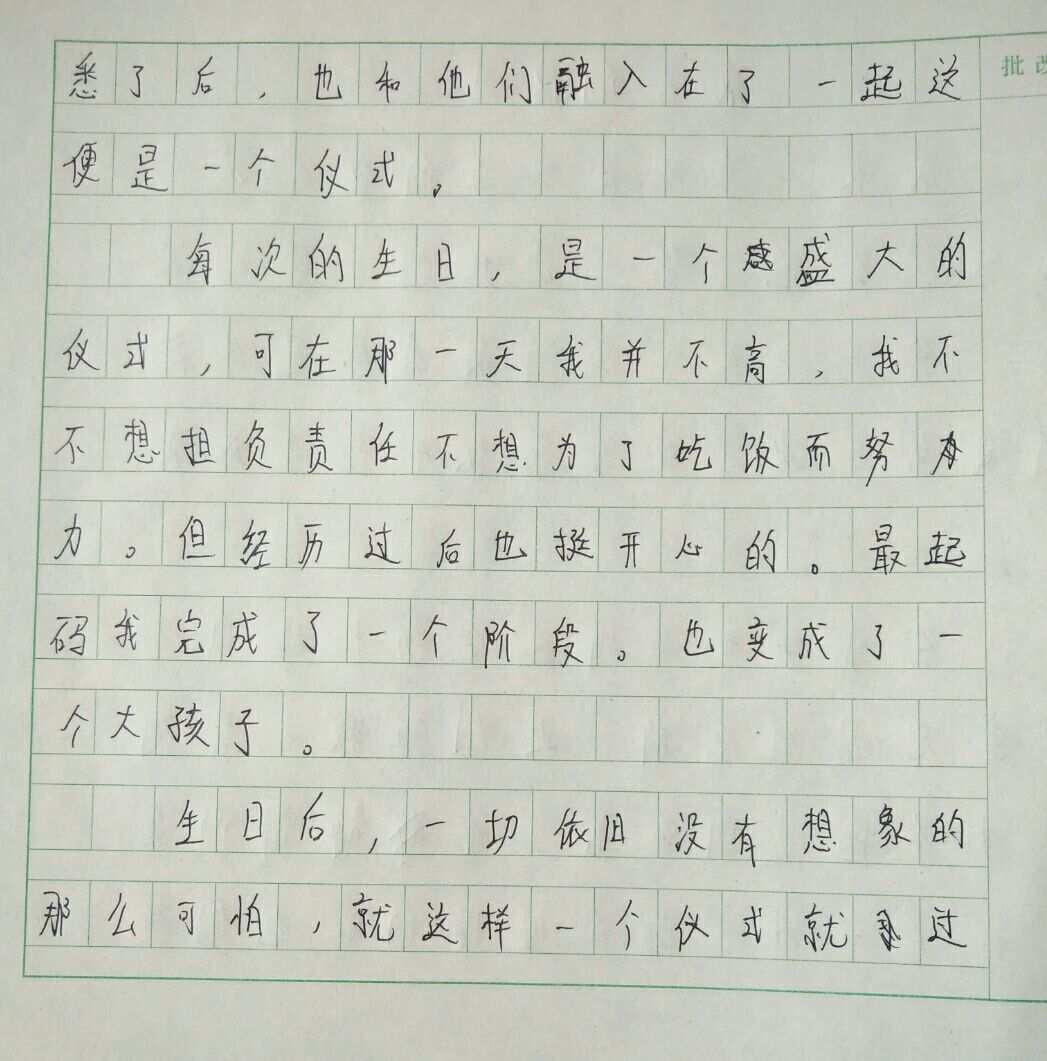 批改
悉了后，也和他们融入在了一起这
便是一个仪式。
每次的生日，是一个盛大的
仪式，可在那一天我并不高，我不
不想担负责任不想为了吃饭而努
力。但经历过后也挺开心的。最起
码我完成了一个阶段。也变成了一
个大孩子。
生日后，一切依旧没有想象的
那么可怕，就这样一个仪式就过